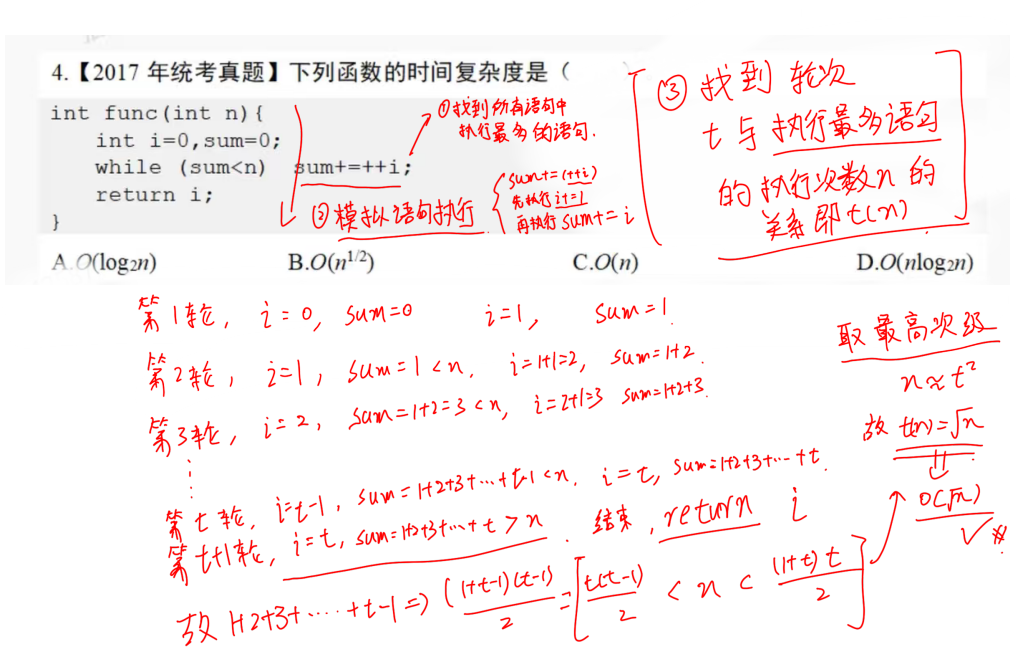 4.【2017 年统考真题】下列函数的时间复杂度是（
int func(int n){
int i=0,sum=0;
while (sum<n) sum+=++i;
return i;
}
①找到所有语句中
执行最多的语句.
②模拟语句执行
sum+=(++i)
先执行 i+=1
再执行 sum+=i
③找到 轮次
t 与 执行最多语句
的 执行次数 n 的
关系 即 t(n)
A.O(log₂n) B.O(n^{1/2}) C.O(n) D.O(nlog₂n)
第1轮, i=0, sum=0 i=1, sum=1.
第2轮, i=1, sum=1<n, i=1+1=2, sum=1+2.
第3轮, i=2, sum=1+2=3<n, i=2+1=3 sum=1+2+3.
⋮
第t轮, i=t-1, sum=1+2+3+…+t-1<n, i=t, sum=1+2+3+…+t.
第t+1轮, i=t, sum=1+2+3+…+t>n. 结束, return i
故 1+2+3+……+t-1 => (1+t-1)(t-1)/2 = [t(t-1)/2 < n < (1+t)t/2]
取最高次级
n≈t²
故 t(n)=√n
⇓
O(√n)
✓